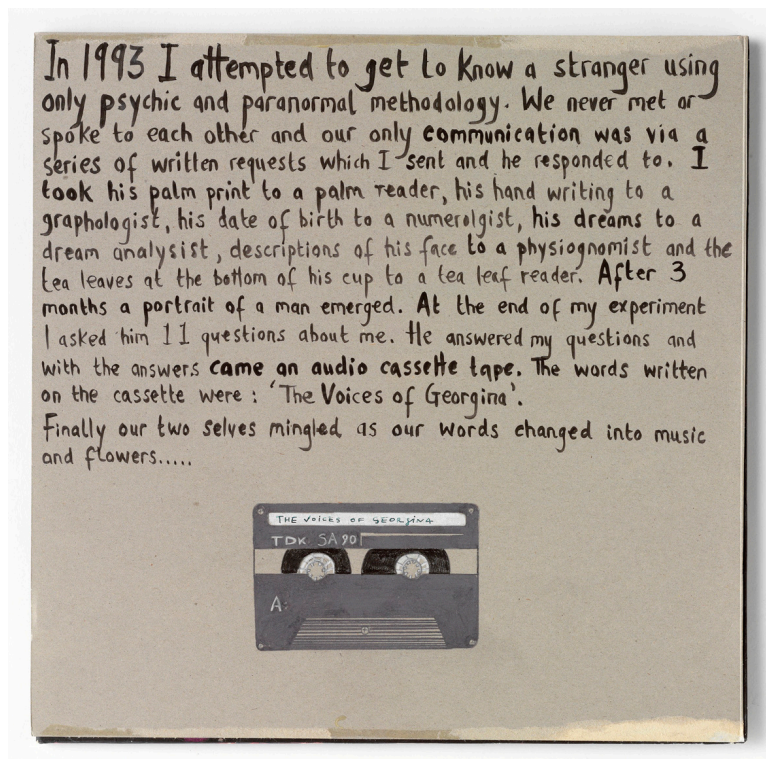 In 1993 I attempted to get to know a stranger using
only psychic and paranormal methodology. We never met or
spoke to each other and our only communication was via a
series of written requests which I sent and he responded to. I
took his palm print to a palm reader, his hand writing to a
graphologist, his date of birth to a numerolgist, his dreams to a
dream analysist, descriptions of his face to a physiognomist and the
tea leaves at the bottom of his cup to a tea leaf reader. After 3
months a portrait of a man emerged. At the end of my experiment
I asked him 11 questions about me. He answered my questions and
with the answers came an audio cassette tape. The words written
on the cassette were: 'The Voices of Georgina'.
Finally our two selves mingled as our words changed into music
and flowers.....
THE VOICES OF GEORGINA
TDK SA90
A